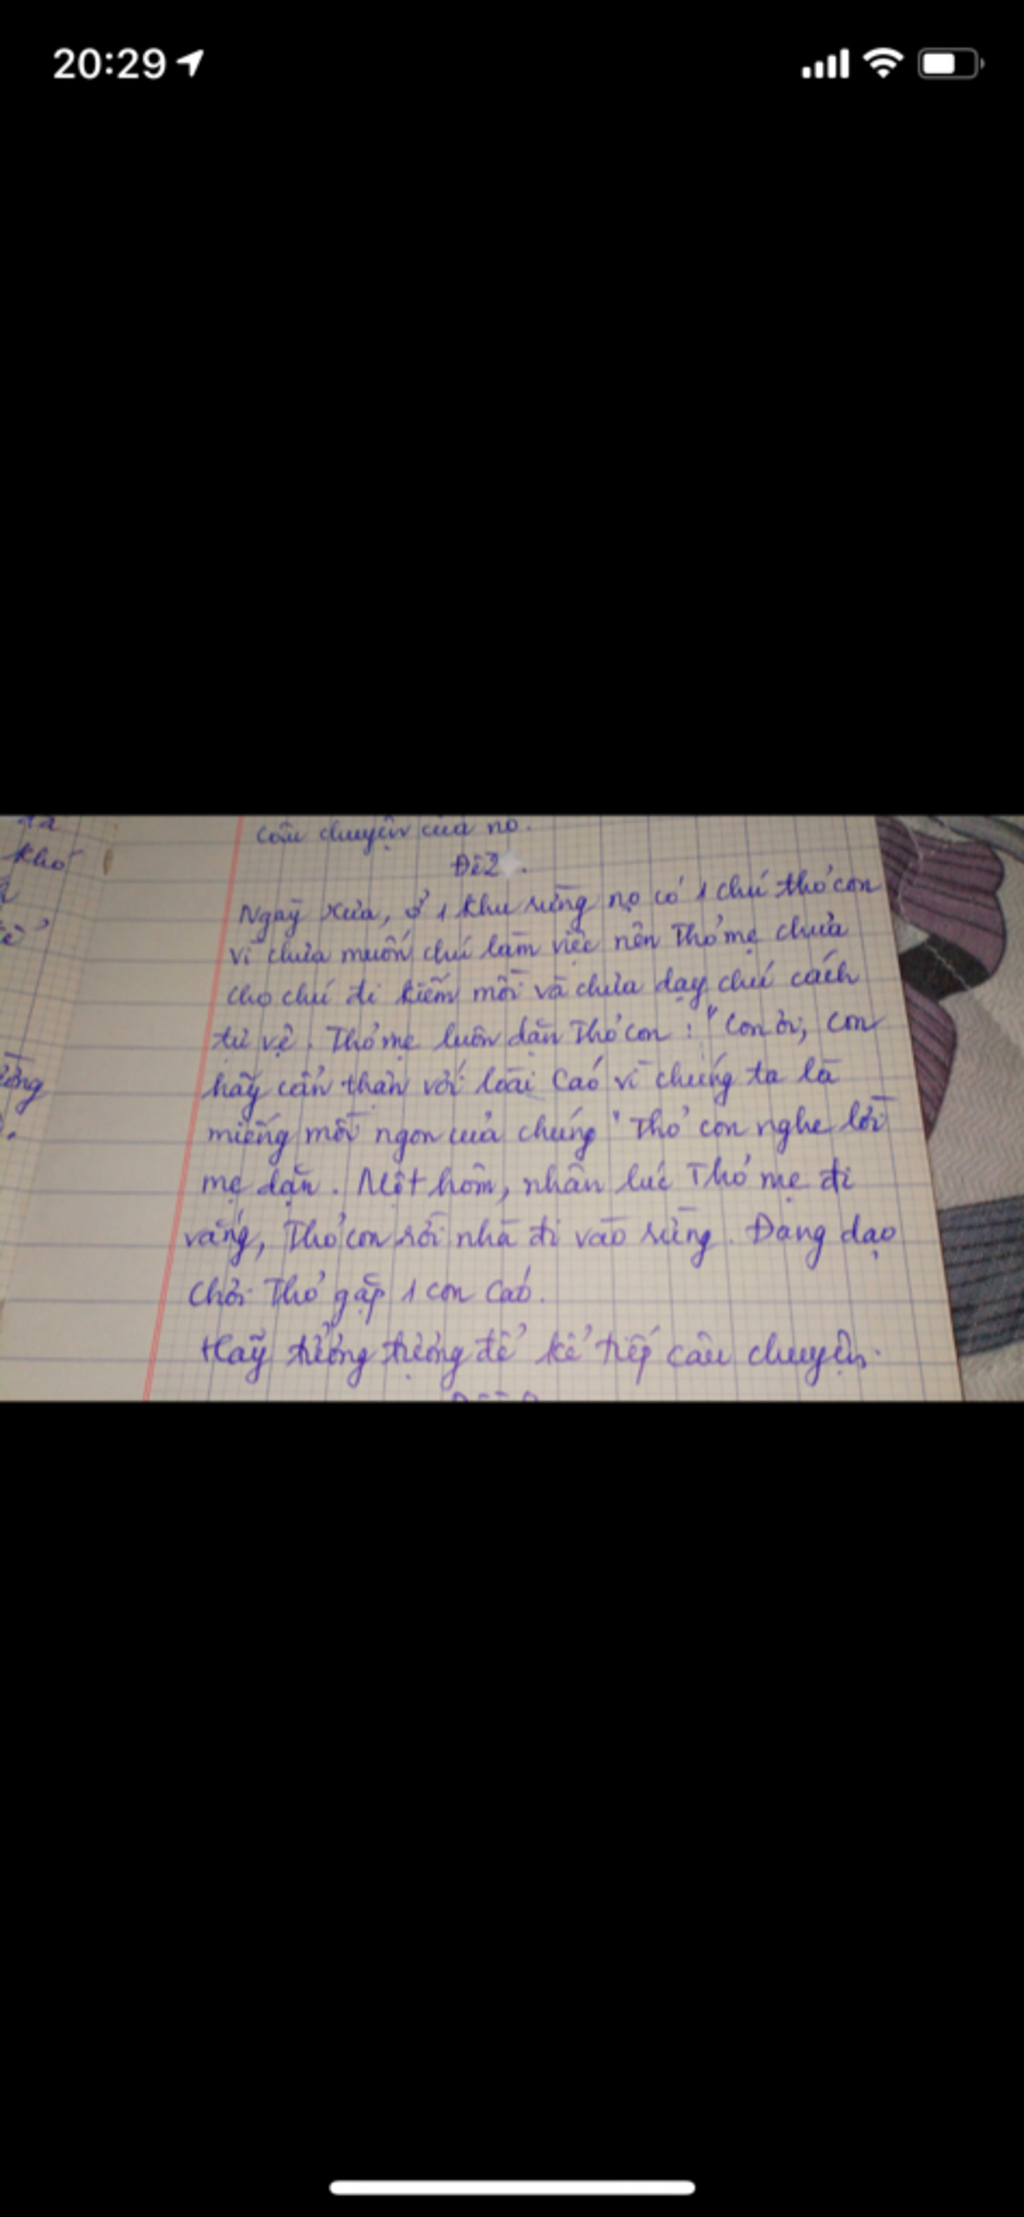 20:29
đã
khó
câu chuyện của nó.
Đề 2.
Ngày xưa, ở 1 khu rừng nọ có 1 chú thỏ con
vì chưa muốn chú làm việc nên Thỏ mẹ chưa
cho chú đi kiếm mồi và chưa dạy chú cách
tự vệ. Thỏ mẹ luôn dặn Thỏ con: "Con ơi, con
hãy cẩn thận với loài Cáo vì chúng ta là
miếng mồi ngon của chúng" Thỏ con nghe lời
mẹ dặn. Một hôm, nhân lúc Thỏ mẹ đi
vắng, Thỏ con rời nhà đi vào rừng. Đang dạo
chơi Thỏ gặp 1 con Cáo.
Hãy tưởng tượng để kể tiếp câu chuyện.